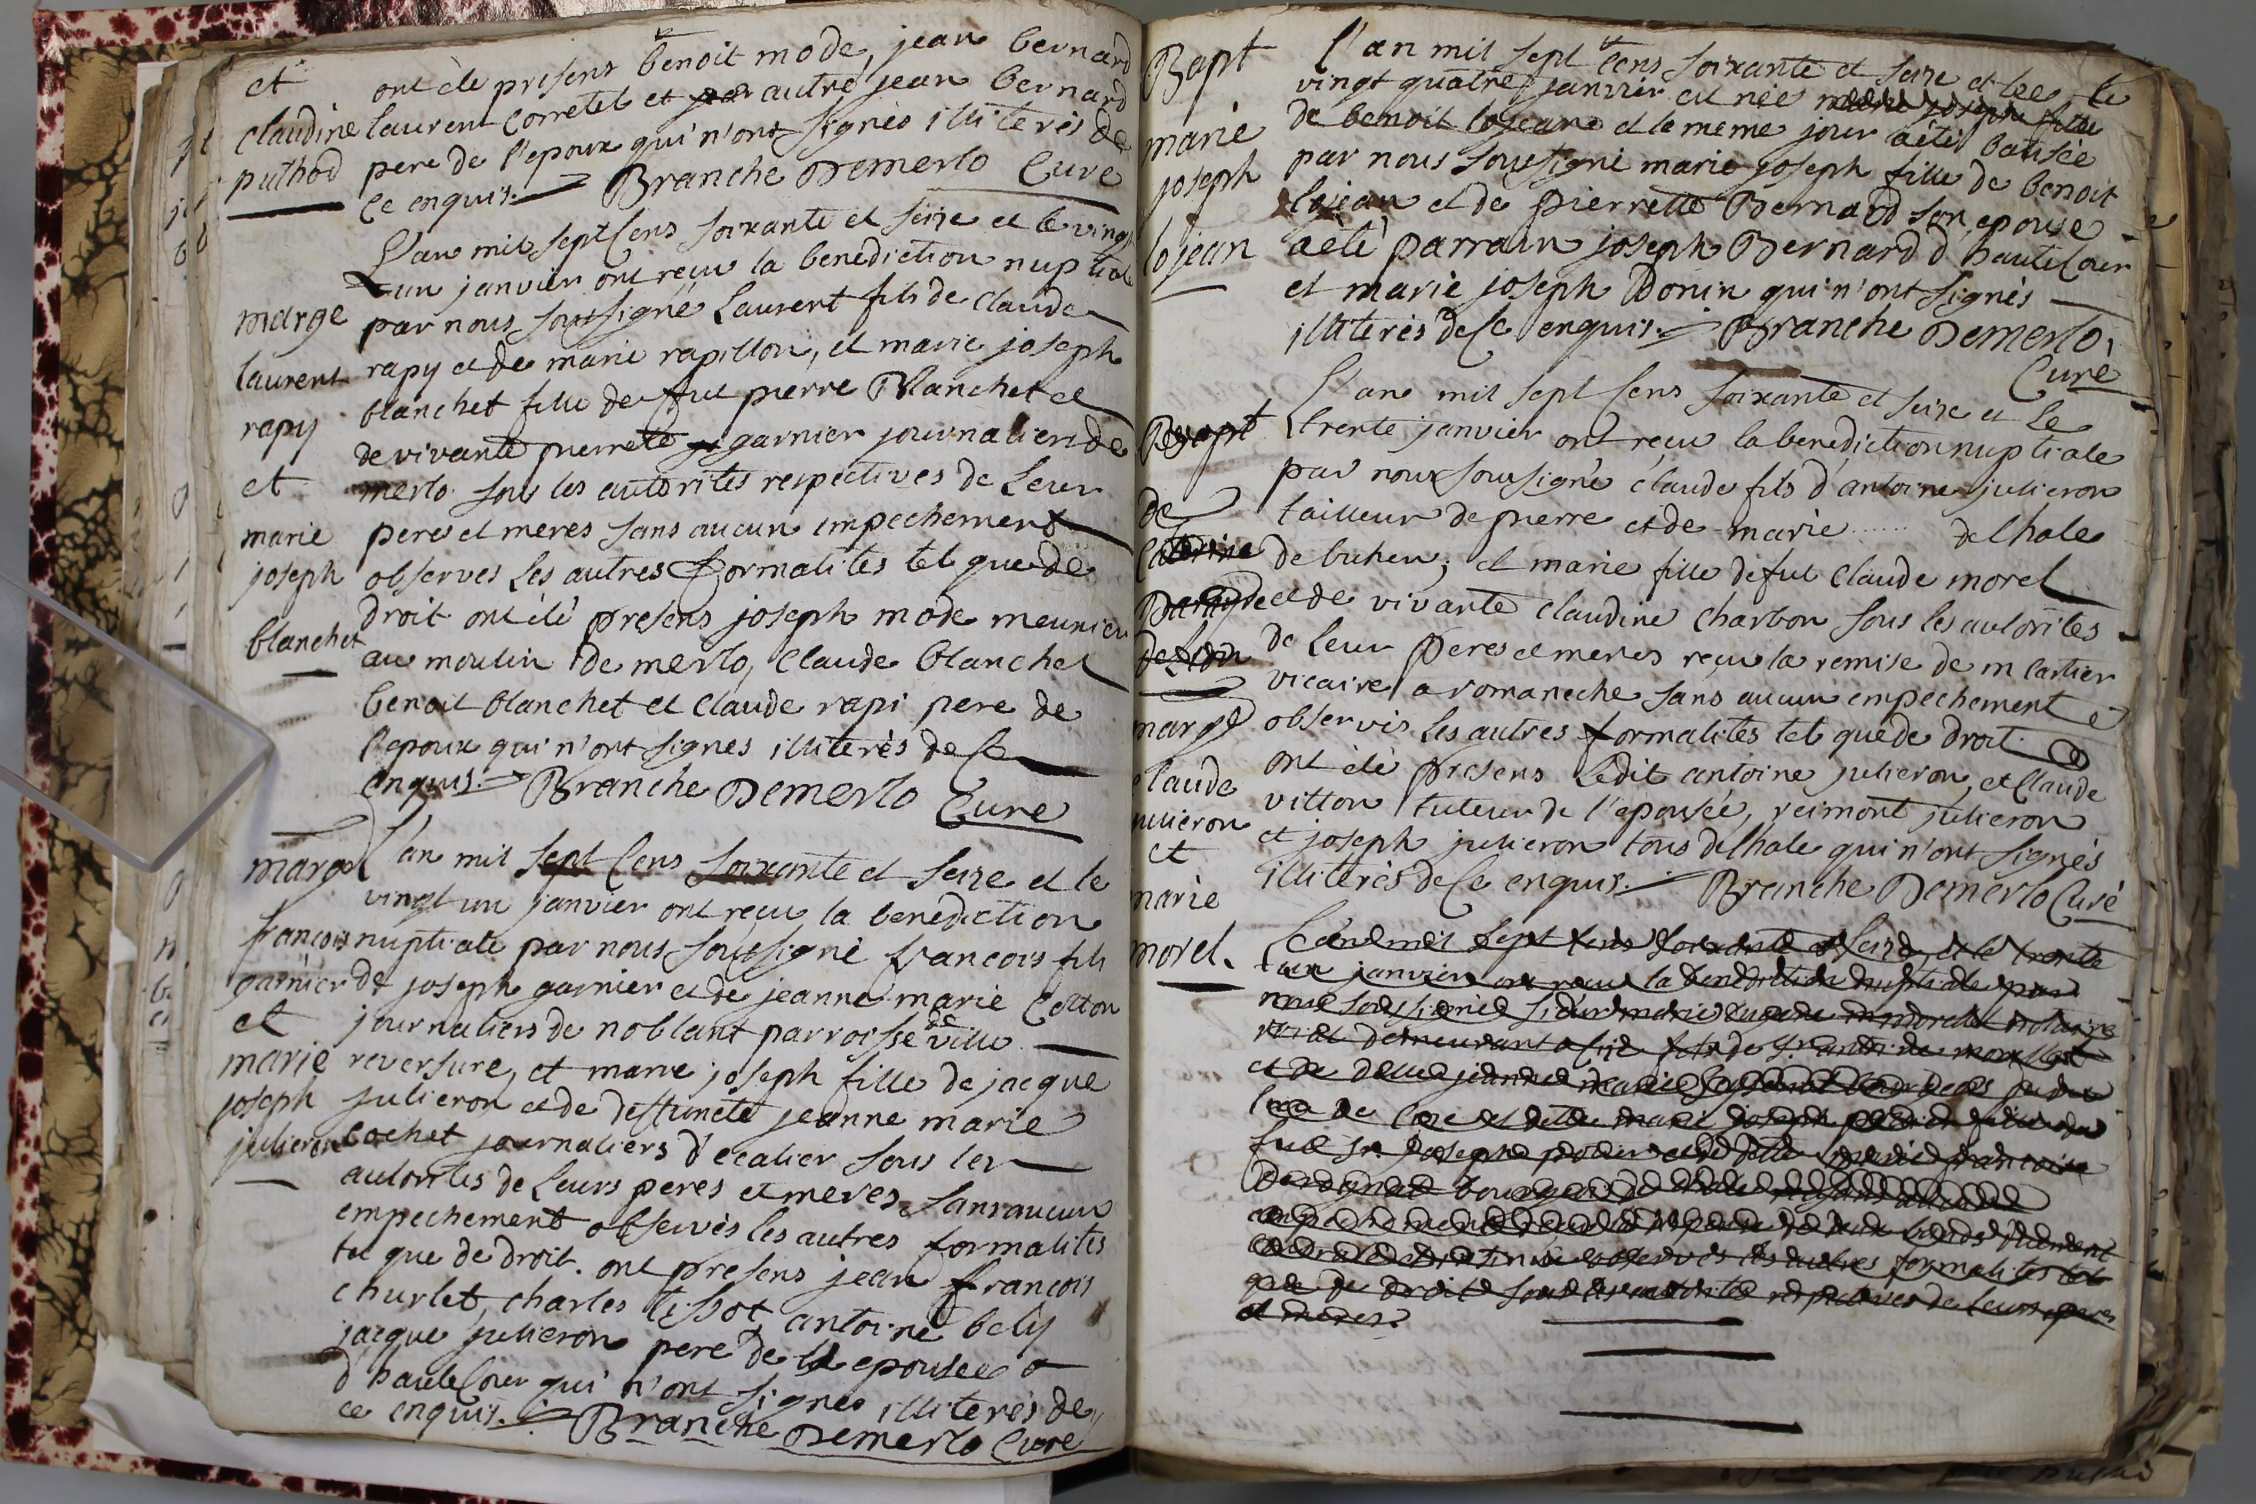 et
claudine
puthod
ont été présens benoit mode, jean bernard
laurent corretet et autre jean bernard
pere de l'epoux qui n'ont signés illiterés de
ce enquis. Branche Demerlo Curé
marge
laurent
rapy
et
marie
joseph
blanchet
L'an mil sept cens soixante et seize et le vingt
un janvier ont reçu la benediction nuptiale
par nous soutsigné Laurent fils de Claude
rapy et de marie rapillon, et marie joseph
blanchet fille de fut pierre Blanchet et
de vivante pierrete garnier journaliers de
merlo sous les autorités respectives de Leur
peres et meres sans aucun empechement
observes Les autres formalités tel que de
droit ont été présens joseph mode meunier
au moulin de merlo, Claude blanchet
benoit blanchet et Claude rapi pere de
l'epoux qui n'ont signes illiterés de ce
enquis. Branche Demerlo
Curé
marge
francois
garnier
et
marie
joseph
julieron
L'an mil sept cens soixante et seize et le
vingt un janvier ont reçu la benediction
nuptiale par nous soutsigné francois fils
de joseph garnier et de jeanne marie Cotton
journaliers de noblant parroisse de ville
reversure, et marie joseph fille de jacque
julieron et de deffuncte jeanne marie
cochet journaliers d'ecalier sous les
autorités de Leurs peres et meres sans aucun
empechement observés les autres formalités
tel que de droit. ont présens jean francois
churlet, charles tissot, antoine bely
jacque julieron pere de epousée
d'hautecour qui n'ont signés illiterés de
ce enquis. Branche Demerlo Curé
Bapt
marie
joseph
lojean
L'an mil sept cens soixante et seize et le
vingt quatre janvier est née marie joseph fille
de benoit lojean et le meme jour a été batisée
par nous sousigné marie joseph fille de benoit
lojean et de Pierrette Bernard son epouse
a été parrain joseph Bernard d'hautecour
et marie joseph Donin qui n'ont signés
illiterés de ce enquis. Branche Demerlo,
Curé
Bapt
de
Caterine
de
marge
claude
julieron
et
marie
morel.
L'an mil sept cens soixante et seize et le
trente janvier ont reçu la benediction nuptiale
par nous sousigné claude fils d'antoine julieron
tailleur de pierre et de marie ...... delhale
de buhen; et marie fille de fut Claude morel
et de vivante claudine charbon sous les autorités
de Leur peres et meres reçu la remise de m cartier
vicaire a romaneche sans aucun empechement
observés les autres formalités tel que de droit
ont été présens Ledit antoine julieron, et Claude
vitton tuteur de l'epousée, reimont julieron
et joseph julieron tous delhale qui n'ont signés
illiterés de ce enquis. Branche Demerlo Curé
L'an mil sept cens soixante et seize, et le trente
un janvier ont reçu la benediction nuptiale par
nous soussigné sieur marie notaire
roial demeurant a fils de Sr
et de jeanne marie
et marie joseph fille de
fut Sr joseph et de marie francoise
bourgeois
empechement
observés les autres formalités tel
que de droit sous les autorités respectives de Leurs peres
et meres.